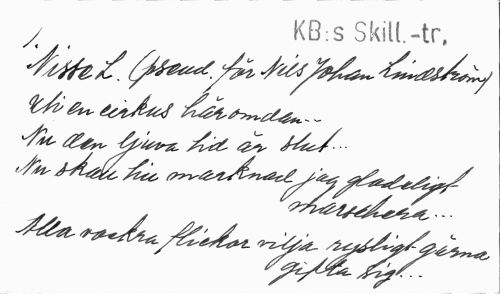 KB:s Skill.-tr.
1.
Nisse L. (pseud. för Nils Johan Lindström)
Uti en cirkus häromdan..
Nu den ljuva tid är slut...
Nu skall till marknad jag gladeligt
marschera...
Alla vackra flickor vilja rysligt gärna
gifta sig...